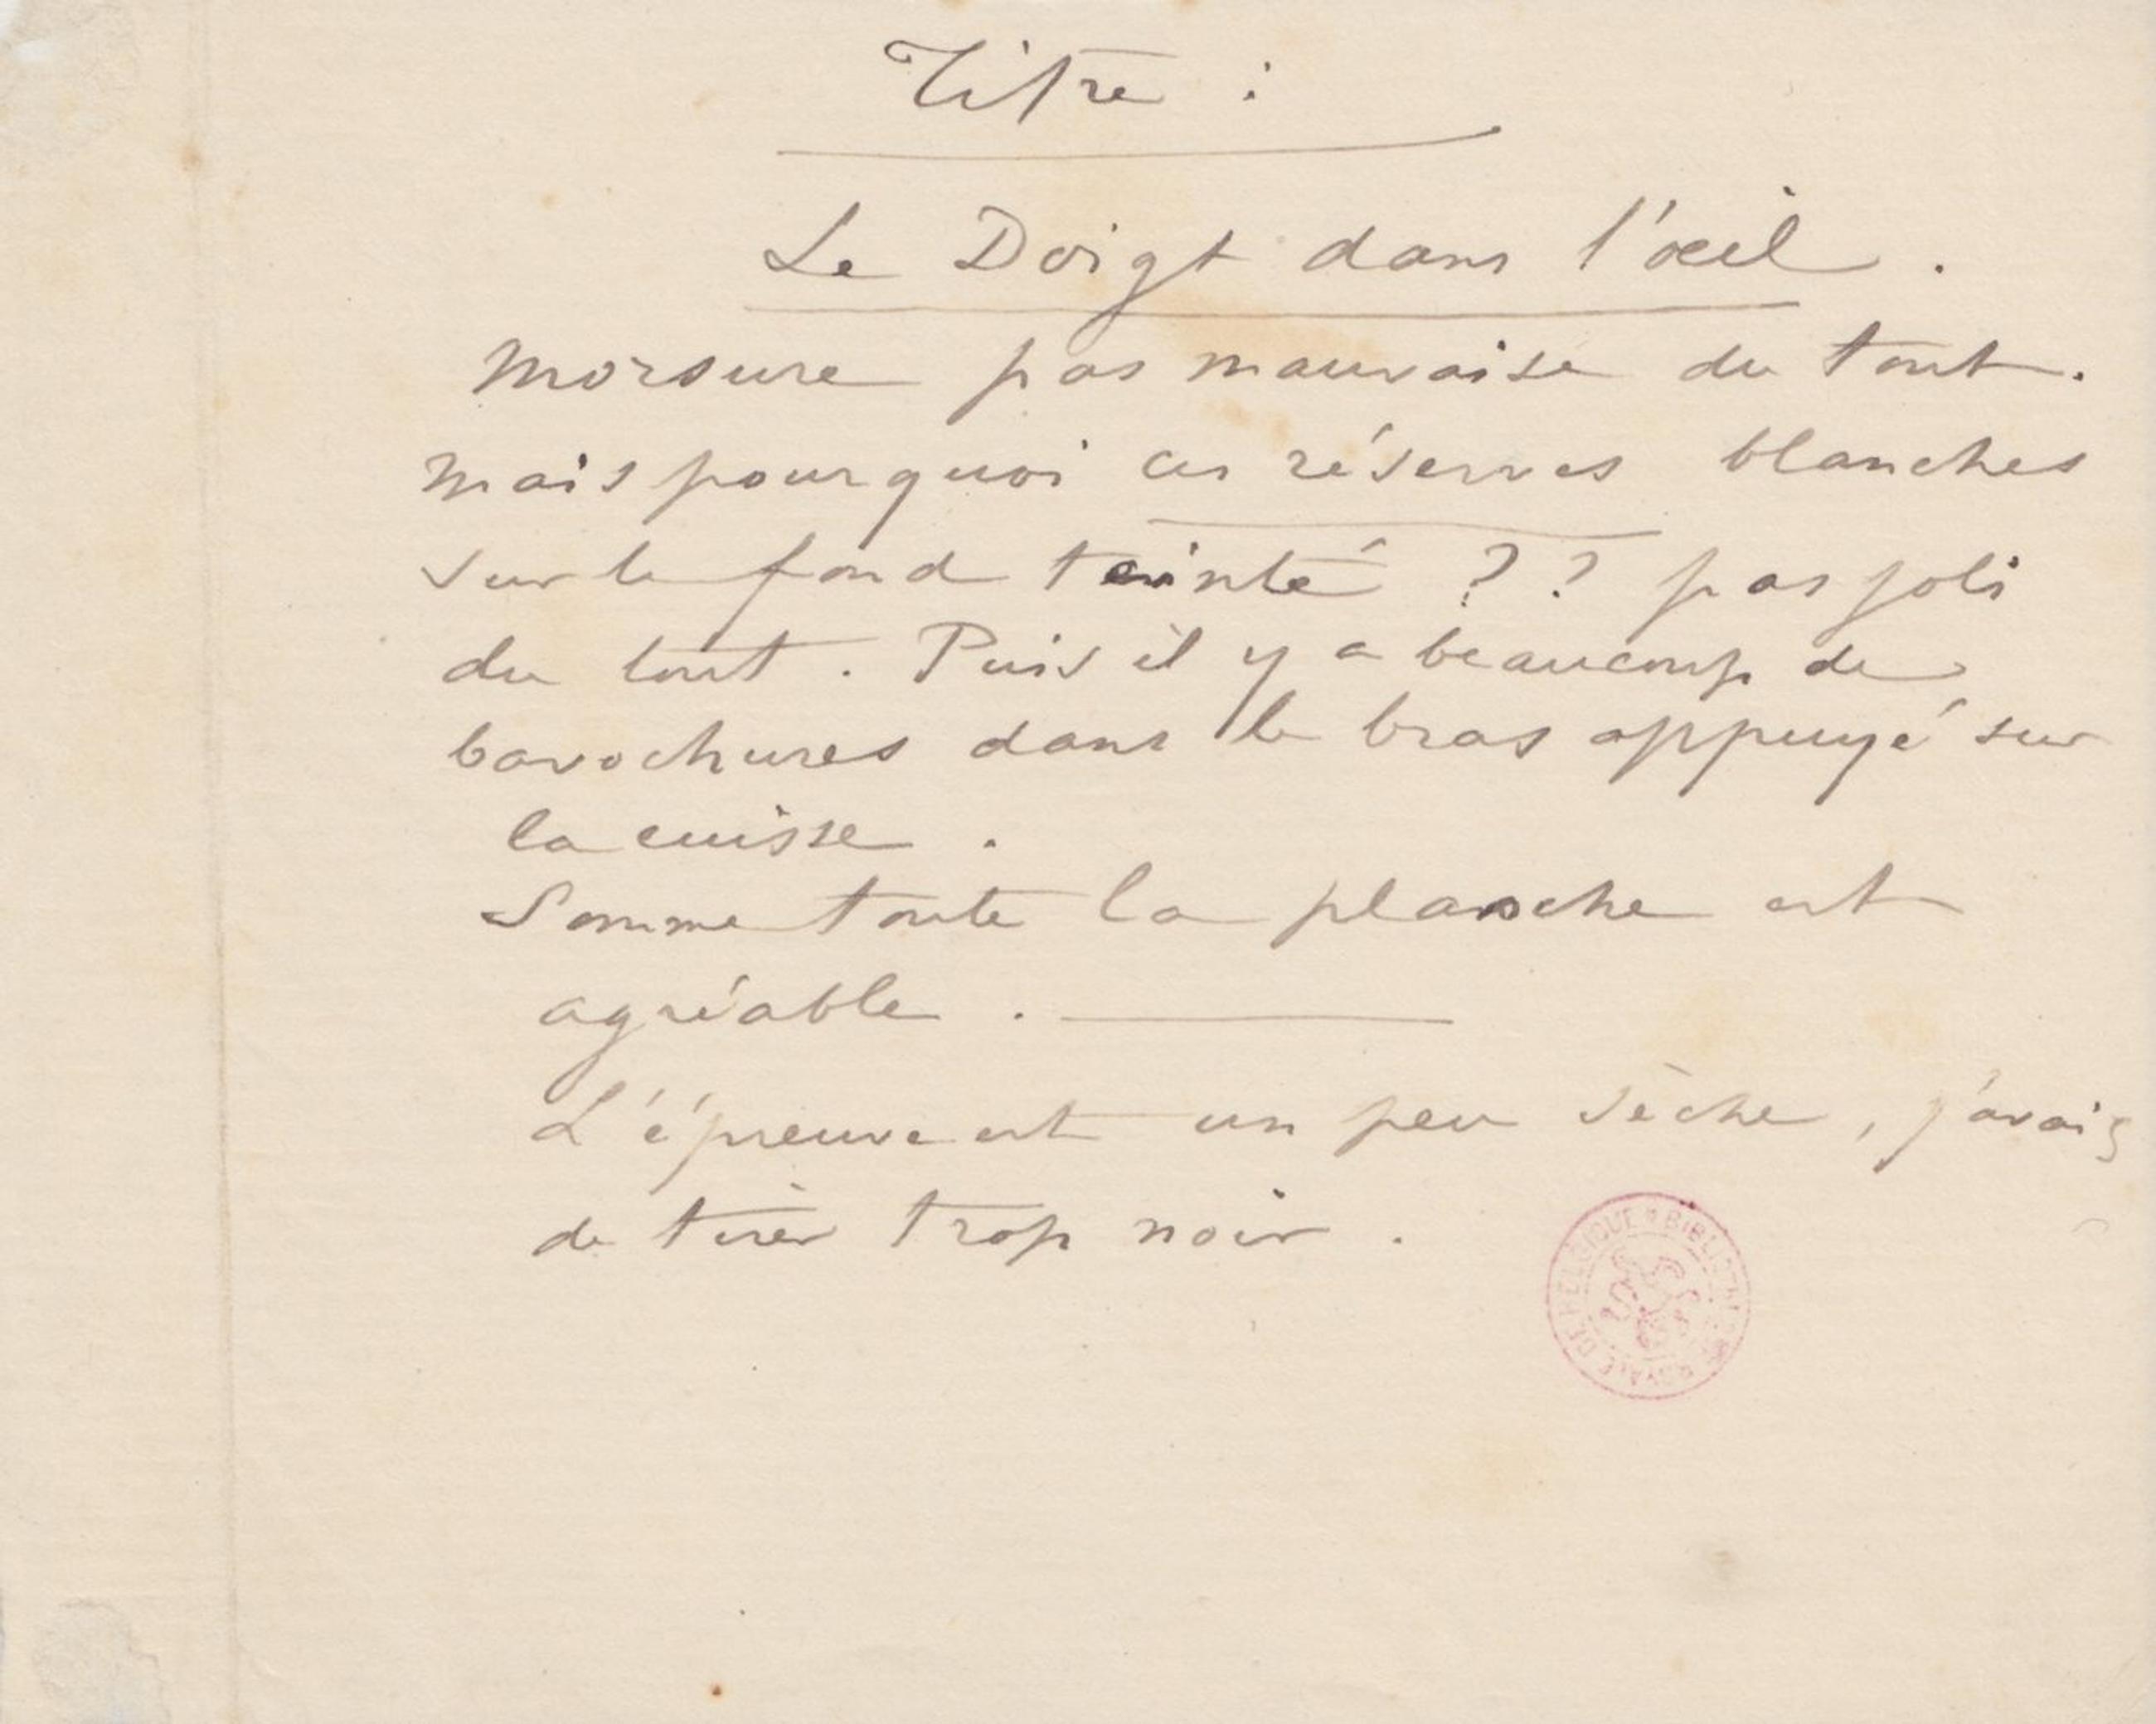 Titre :
Le Doigt dans l'œil.
Morsure pas mauvaise du tout.
Mais pourquoi ces réserves blanches
sur le fond teinté ?? pas joli
du tout. Puis il y a beaucoup de
bavochures dans le bras appuyé sur
la cuisse.
Somme toute la planche est
agréable. —
L'épreuve est un peu sèche, j'avais
de tirer trop noir.
BIBLIOTHEQUE ROYALE DE BELGIQUE